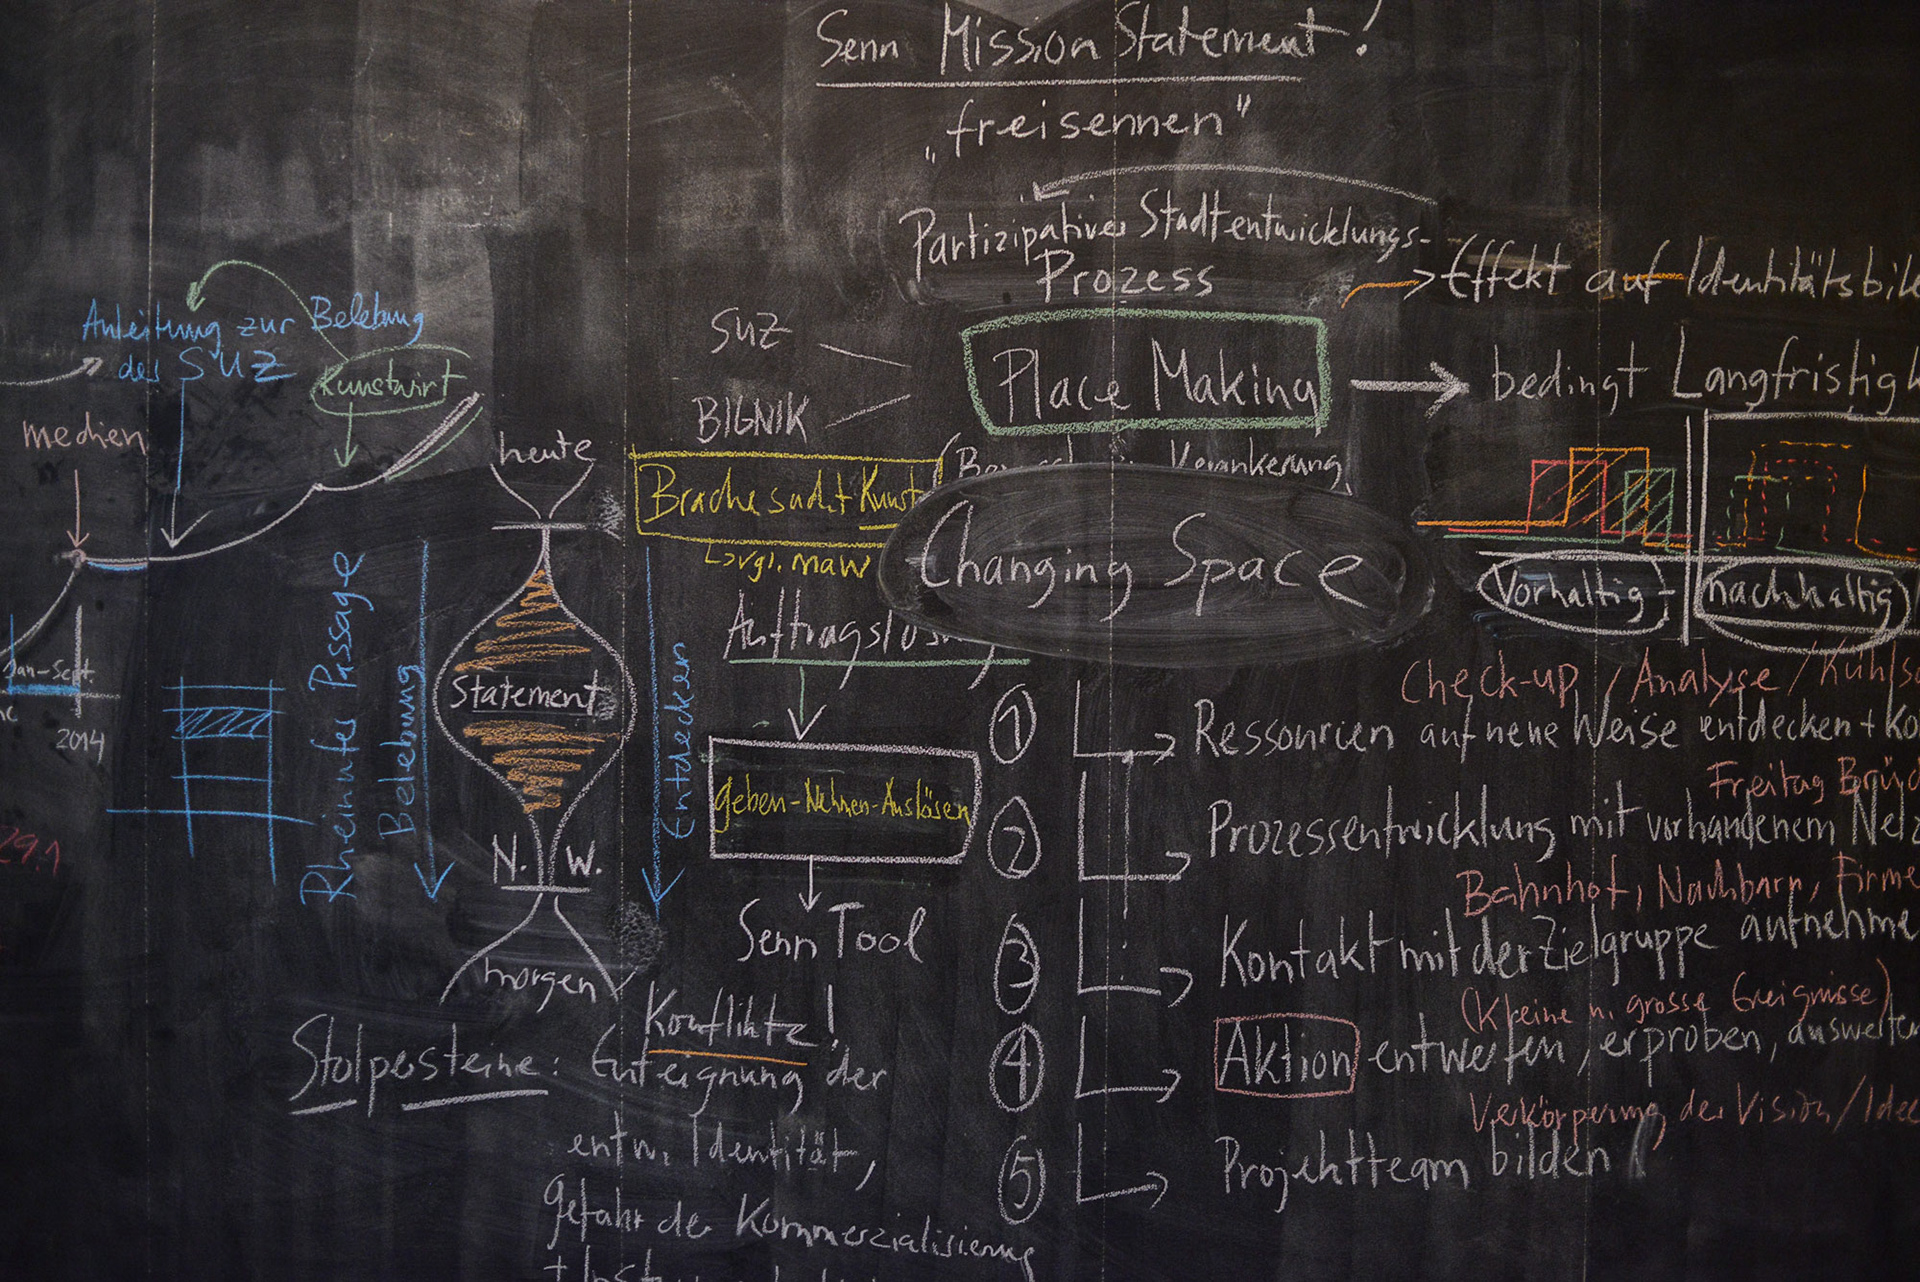 Senn Mission Statement!
„freisennen"
Partizipativer Stadtentwicklungs-
Prozess
Effekt auf Identitätsbil
SUZ
BIGNIK
Place Making
bedingt Langfristigk
Verankerung
Brache sucht Kunst
vgl. maw
Changing Space
Vorhaltig
nachhaltig
Anleitung zur Belebung
des SUZ
Kunstwirt
medien
Jan-Sept.
2014
29.1
Rheinufer Passage
Belebung
heute
Statement
N. W.
morgen
Entdecken
geben-Nehmen-Auslösen
Senn Tool
Check-up / Analyse / Kühlsc
① Ressourcen auf neue Weise entdecken + Ko
Freitag Brüc
② Prozessentwicklung mit vorhandenem Netz
Bahnhof, Nachbarn, Firme
③ Kontakt mit der Zielgruppe aufnehme
(Kleine u. grosse Ereignisse)
④ Aktion entwerfen, erproben, ausweiten
Verkörperung der Vision / Idee
⑤ Projektteam bilden
Konflikte!
Stolpersteine: Enteignung der
entw. Identität,
gefahr der Kommerzialisierung